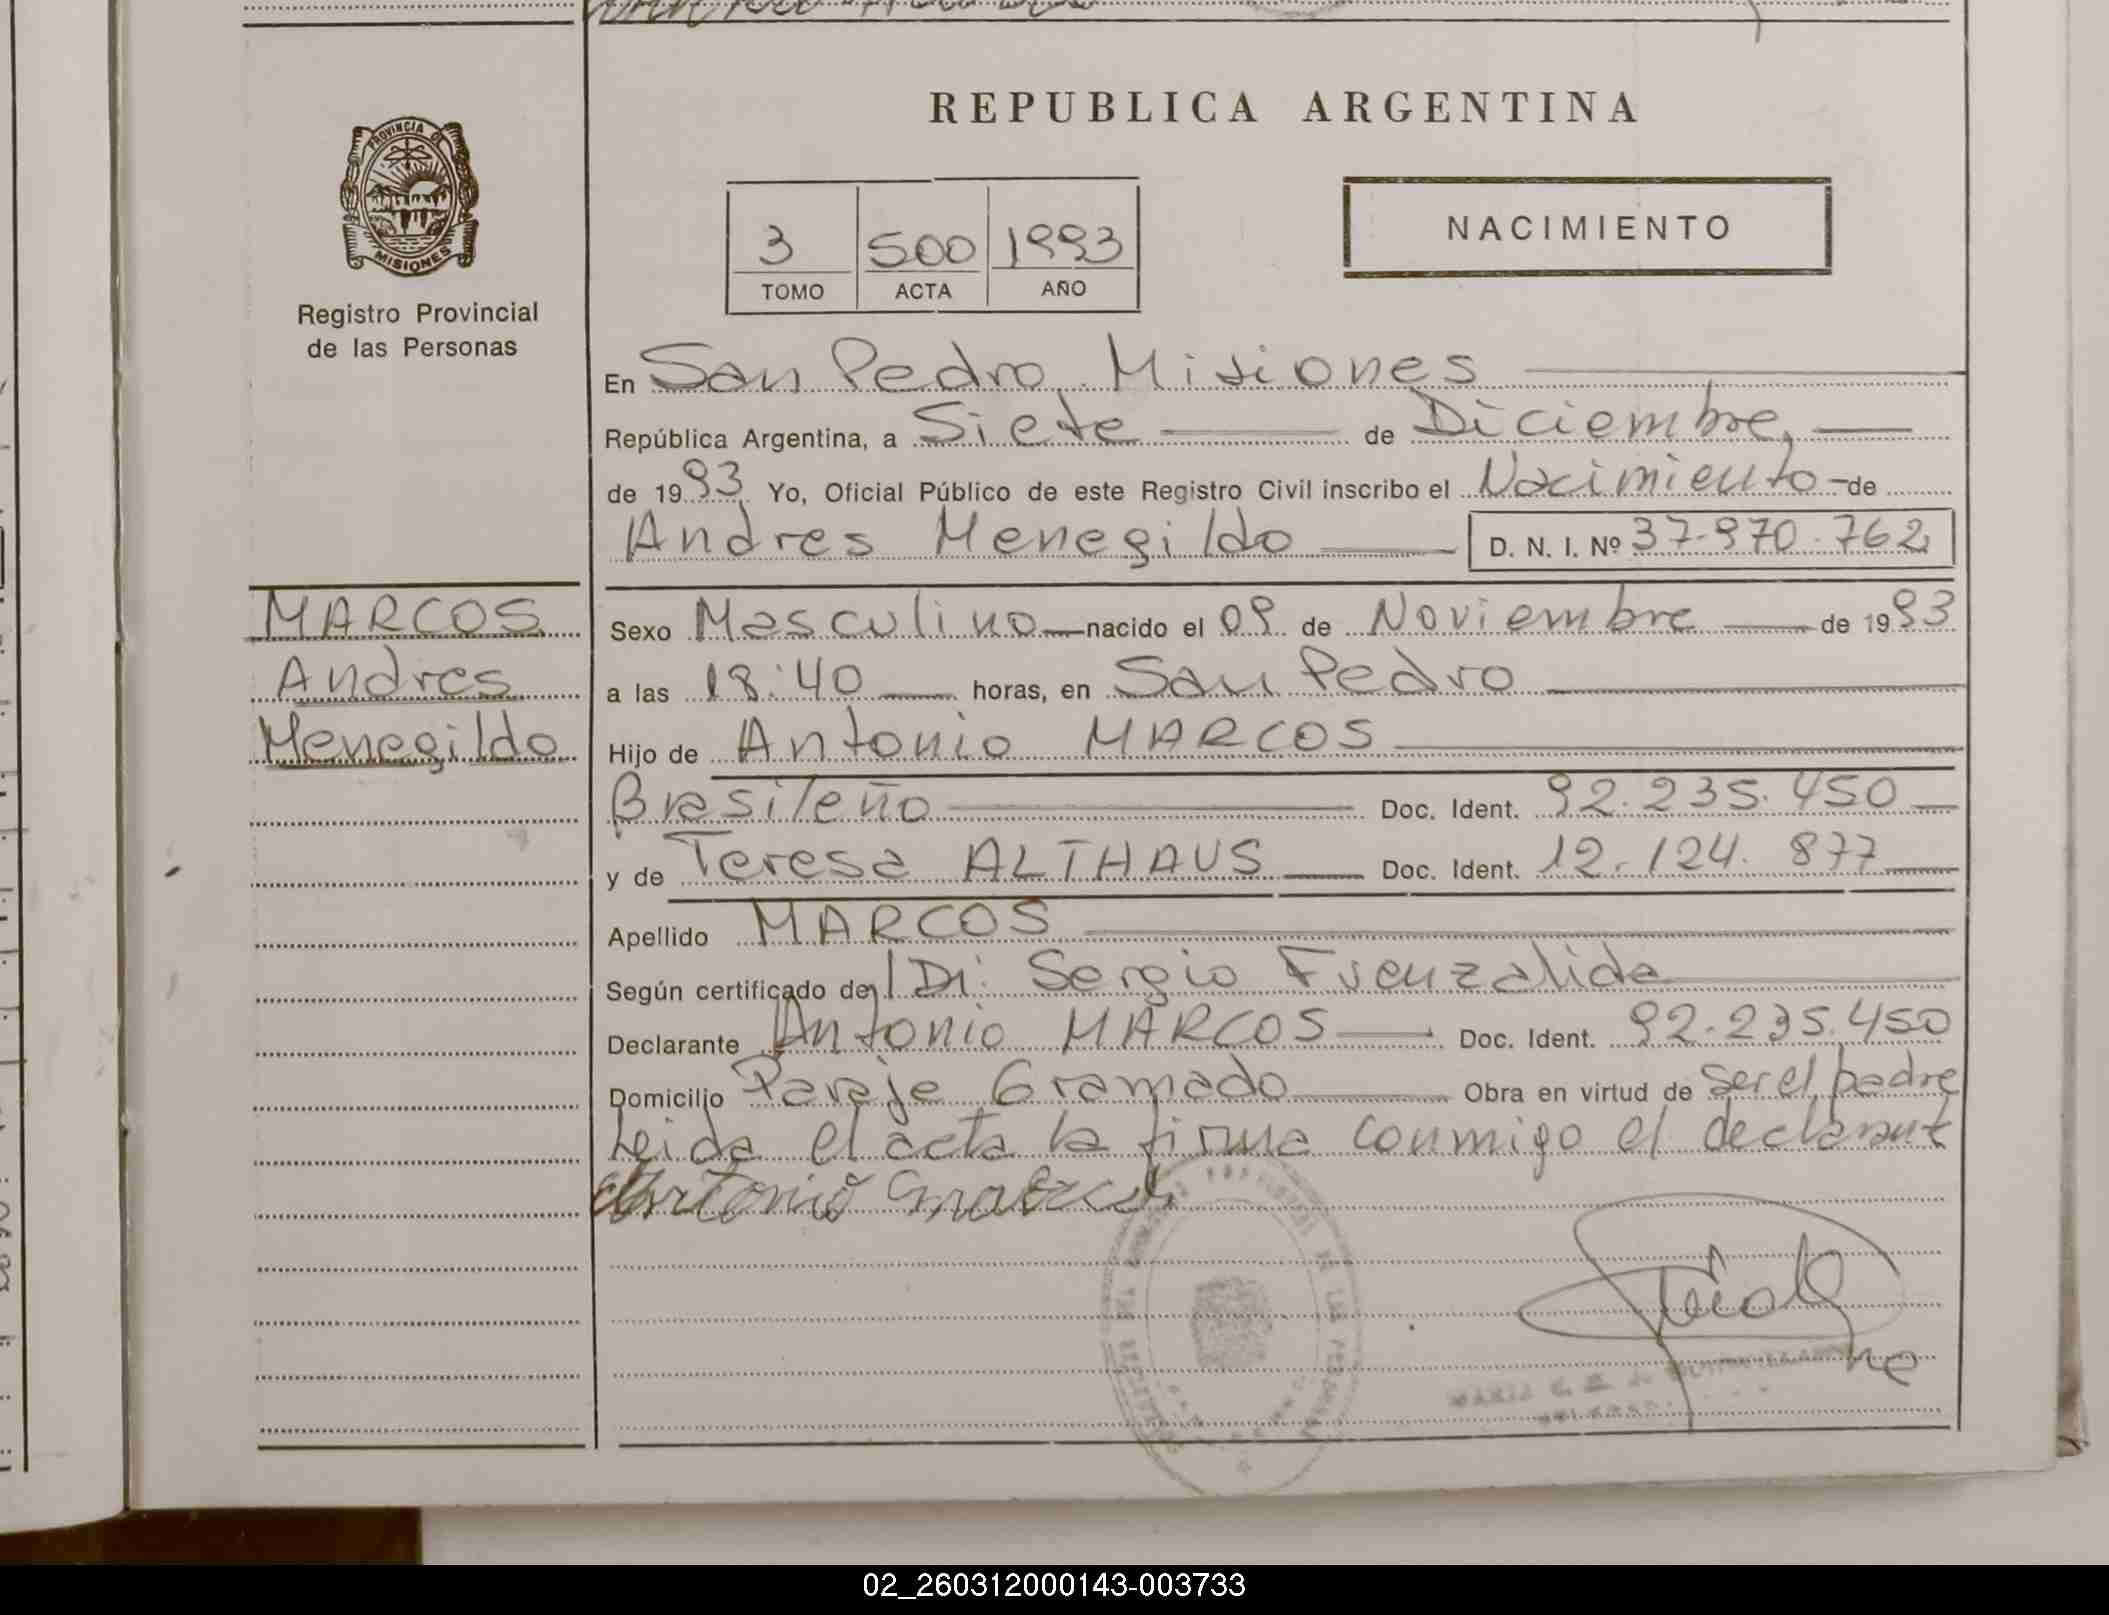 REPUBLICA ARGENTINA
PROVINCIA DE
MISIONES
Registro Provincial
de las Personas
3 500 1993
TOMO ACTA AÑO
NACIMIENTO
En San Pedro Misiones
República Argentina, a Siete de Diciembre,
de 1993 Yo, Oficial Público de este Registro Civil inscribo el Nacimiento de
Andres Menegildo D. N. I. Nº 37.970.762
MARCOS
Andres
Menegildo
Sexo Masculino nacido el 09 de Noviembre de 1993
a las 18:40 horas, en San Pedro
Hijo de Antonio MARCOS
Brasileño Doc. Ident. 92.235.450
y de Teresa ALTHAUS Doc. Ident. 12.124.877
Apellido MARCOS
Según certificado de Sergio Fuenzalida
Declarante Antonio MARCOS Doc. Ident. 92.235.450
Domicilio Paraje Gramado Obra en virtud de ser el padre
Leida el acta la firma conmigo el declarant
Antonio Marcos
02_260312000143-003733